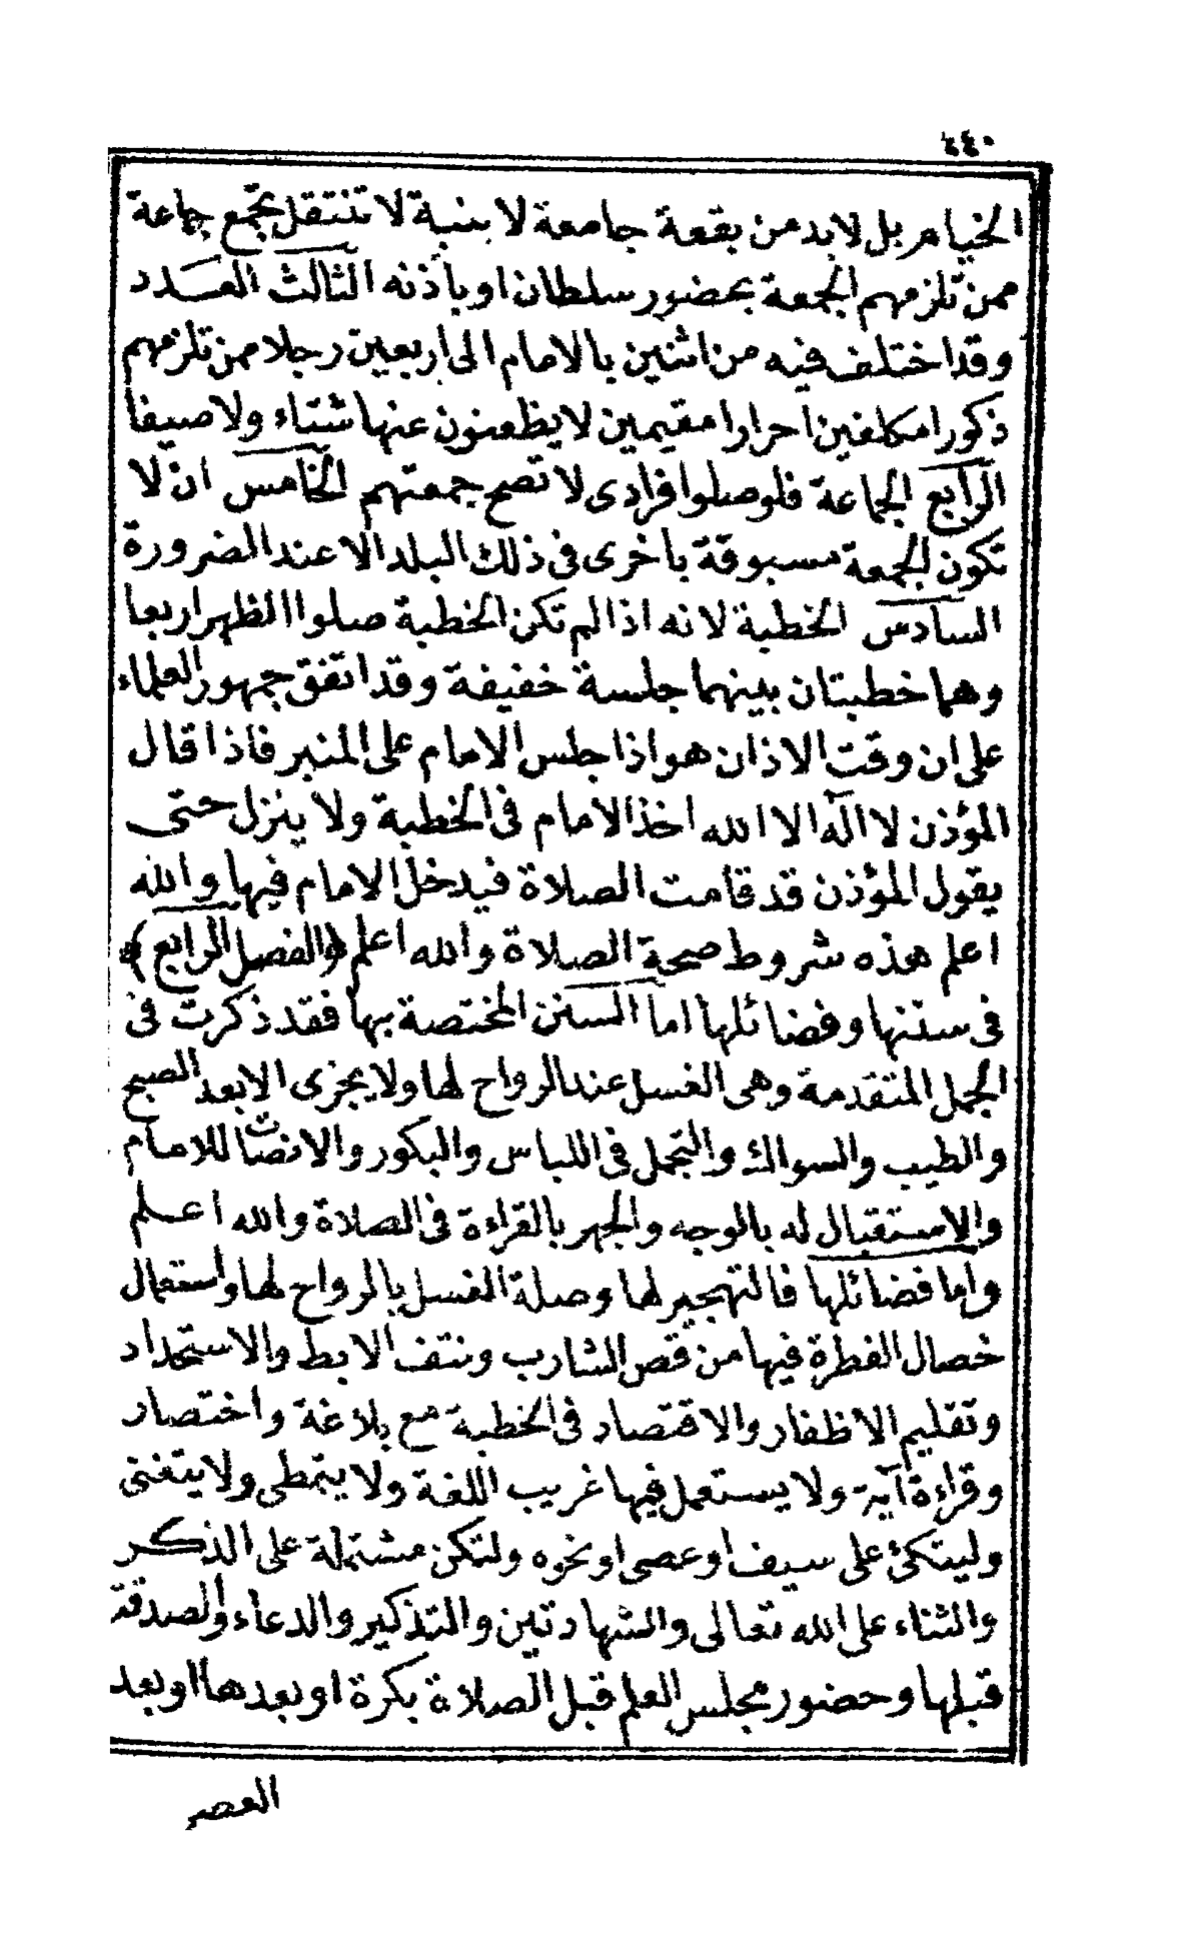 ٤٤٠
الخيام بل لابد من بقعة جامعة لابنية لا تنتقل بجمع جماعة
ممن تلزمهم الجمعة بحضور سلطان او باذنه الثالث العدد
وقد اختلف فيه من اثنين بالامام الى اربعين رجلا ممن تلزمهم
ذكورا مكلفين احرارا مقيمين لا يظعنون عنها شتاء ولا صيفا
الرابع الجماعة فلو صلوا فرادى لا تصح جمعتهم الخامس ان لا
تكون الجمعة مسبوقة باخرى فى ذلك البلد الا عند الضرورة
السادس الخطبة لانه اذا لم تكن الخطبة صلوا الظهر اربعا
وهما خطبتان بينهما جلسة خفيفة وقد اتفق جمهور العلماء
على ان وقت الاذان هو اذا جلس الامام على المنبر فاذا قال
المؤذن لا اله الا الله اخذ الامام فى الخطبة ولا ينزل حتى
يقول المؤذن قد قامت الصلاة فيدخل الامام فيها والله
اعلم هذه شروط صحة الصلاة والله اعلم ﴿والفصل الرابع﴾
فى سننها وفضائلها اما السنن المختصة بها فقد ذكرت فى
الجمل المتقدمة وهى الغسل عند الرواح لها ولا يجزى الا بعد الصبح
والطيب والسواك والتجمل فى اللباس والبكور والانصات للامام
والاستقبال له بالوجه والجهر بالقراءة فى الصلاة والله اعلم
واما فضائلها فالتهجير لها وصلة الغسل بالرواح لها واستعمال
خصال الفطرة فيها من قص الشارب ونتف الابط والاستحداد
وتقليم الاظفار والاقتصاد فى الخطبة مع بلاغة واختصار
وقراءة آية ولا يستعمل فيها غريب اللغة ولا يتمطى ولا يتغنى
وليتكئ على سيف او عصى او نحوه ولتكن مشتملة على الذكر
والثناء على الله تعالى والشهادتين والتذكير والدعاء والصدقة
قبلها وحضور مجلس العلم قبل الصلاة بكرة او بعدها او بعد
العصر